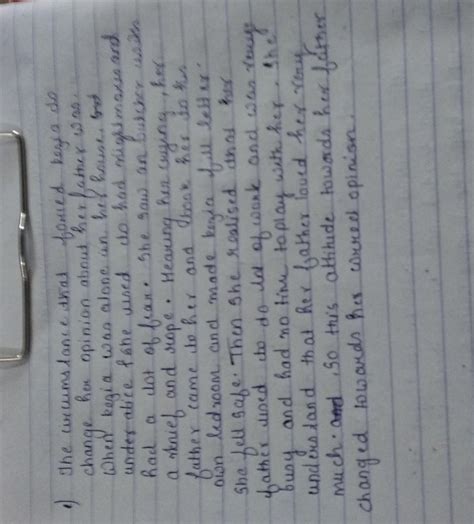 1) The circumstance that forced kezia to
change her opinion about her father was.
When kezia was alone in her house and
under alice she used to had nightmares and
had a lot of fear. She saw an butcher with
a knief and rope. Hearing her crying, her
father came to her and took her to his
own bedroom and made kezia fill better.
She fell safe. Then she realised that her
father used to do lot of work and was very
busy and had no time to play with her. She
understand that her father loved her very
much. and so this attitude towards her father
changed towards her correct opinion.